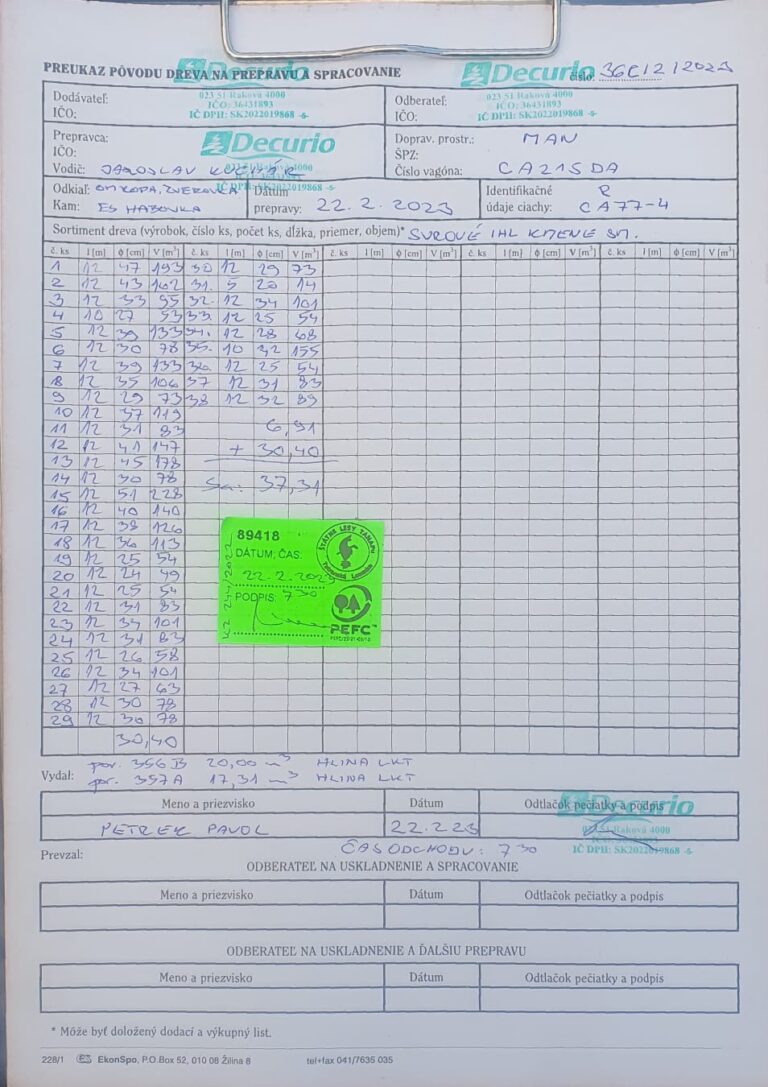 PREUKAZ PÔVODU DREVA NA PREPRAVU A SPRACOVANIE
Decurio
číslo: 36C/2/2023
Dodávateľ: 023 51 Raková 4000
IČO: IČO: 36431893
IČ DPH: SK2022019868 -5-
Odberateľ: 023 51 Raková 4000
IČO: IČO: 36431893
IČ DPH: SK2022019868 -5-
Prepravca: Decurio
IČO:
Vodič: JAROSLAV KUCHÁR
Doprav. prostr.: MAN
ŠPZ:
Číslo vagóna: CA215DA
Odkiaľ: ZVEROVKA
Kam: ES HABOVKA
Dátum prepravy: 22.2.2023
Identifikačné údaje ciachy: R CA77-4
Sortiment dreva (výrobok, číslo ks, počet ks, dĺžka, priemer, objem)* SUROVÉ IHL KMENE SM.
č. ks l [m] ϕ [cm] V [m³] č. ks l [m] ϕ [cm] V [m³] č. ks l [m] ϕ [cm] V [m³] č. ks l [m] ϕ [cm] V [m³] č. ks l [m] ϕ [cm] V [m³]
1 12 47 193 30 12 29 73
2 12 43 162 31. 5 20 14
3 12 33 95 32. 12 34 101
4 10 27 53 33 12 25 54
5 12 39 133 34. 12 28 68
6 12 30 78 35. 10 32 155
7 12 39 133 36. 12 25 54
8 12 35 106 37 12 31 83
9 12 29 73 38 12 32 89
10 12 37 119
11 12 31 83 6,91
12 12 41 147 + 30,40
13 12 45 178
14 12 30 78 Sa: 37,31
15 12 51 228
16 12 40 140
17 12 38 126
18 12 36 113
19 12 25 54
20 12 24 49
21 12 25 54
22 12 31 83
23 12 34 101
24 12 31 83
25 12 26 58
26 12 34 101
27 12 27 63
28 12 30 78
29 12 30 78
30,40
89418
DÁTUM, ČAS:
22.2.2023
PODPIS: 7 30
ŠTÁTNE LESY TANAPu
Tatranská Lomnica
PEFC
Vydal: por. 356 B 20,00 m³ HLINA LKT
por. 357 A 17,31 m³ HLINA LKT
Meno a priezvisko Dátum Odtlačok pečiatky a podpis
PETREK PAVOL 22.2.23
Decurio
023 51 Raková 4000
IČ DPH: SK2022019868 -5-
Prevzal: ČAS ODCHODU: 7 30
ODBERATEĽ NA USKLADNENIE A SPRACOVANIE
Meno a priezvisko Dátum Odtlačok pečiatky a podpis
ODBERATEĽ NA USKLADNENIE A ĎALŠIU PREPRAVU
Meno a priezvisko Dátum Odtlačok pečiatky a podpis
* Môže byť doložený dodací a výkupný list.
228/1 ES EkonSpo, P.O.Box 52, 010 08 Žilina 8 tel+fax 041/7635 035